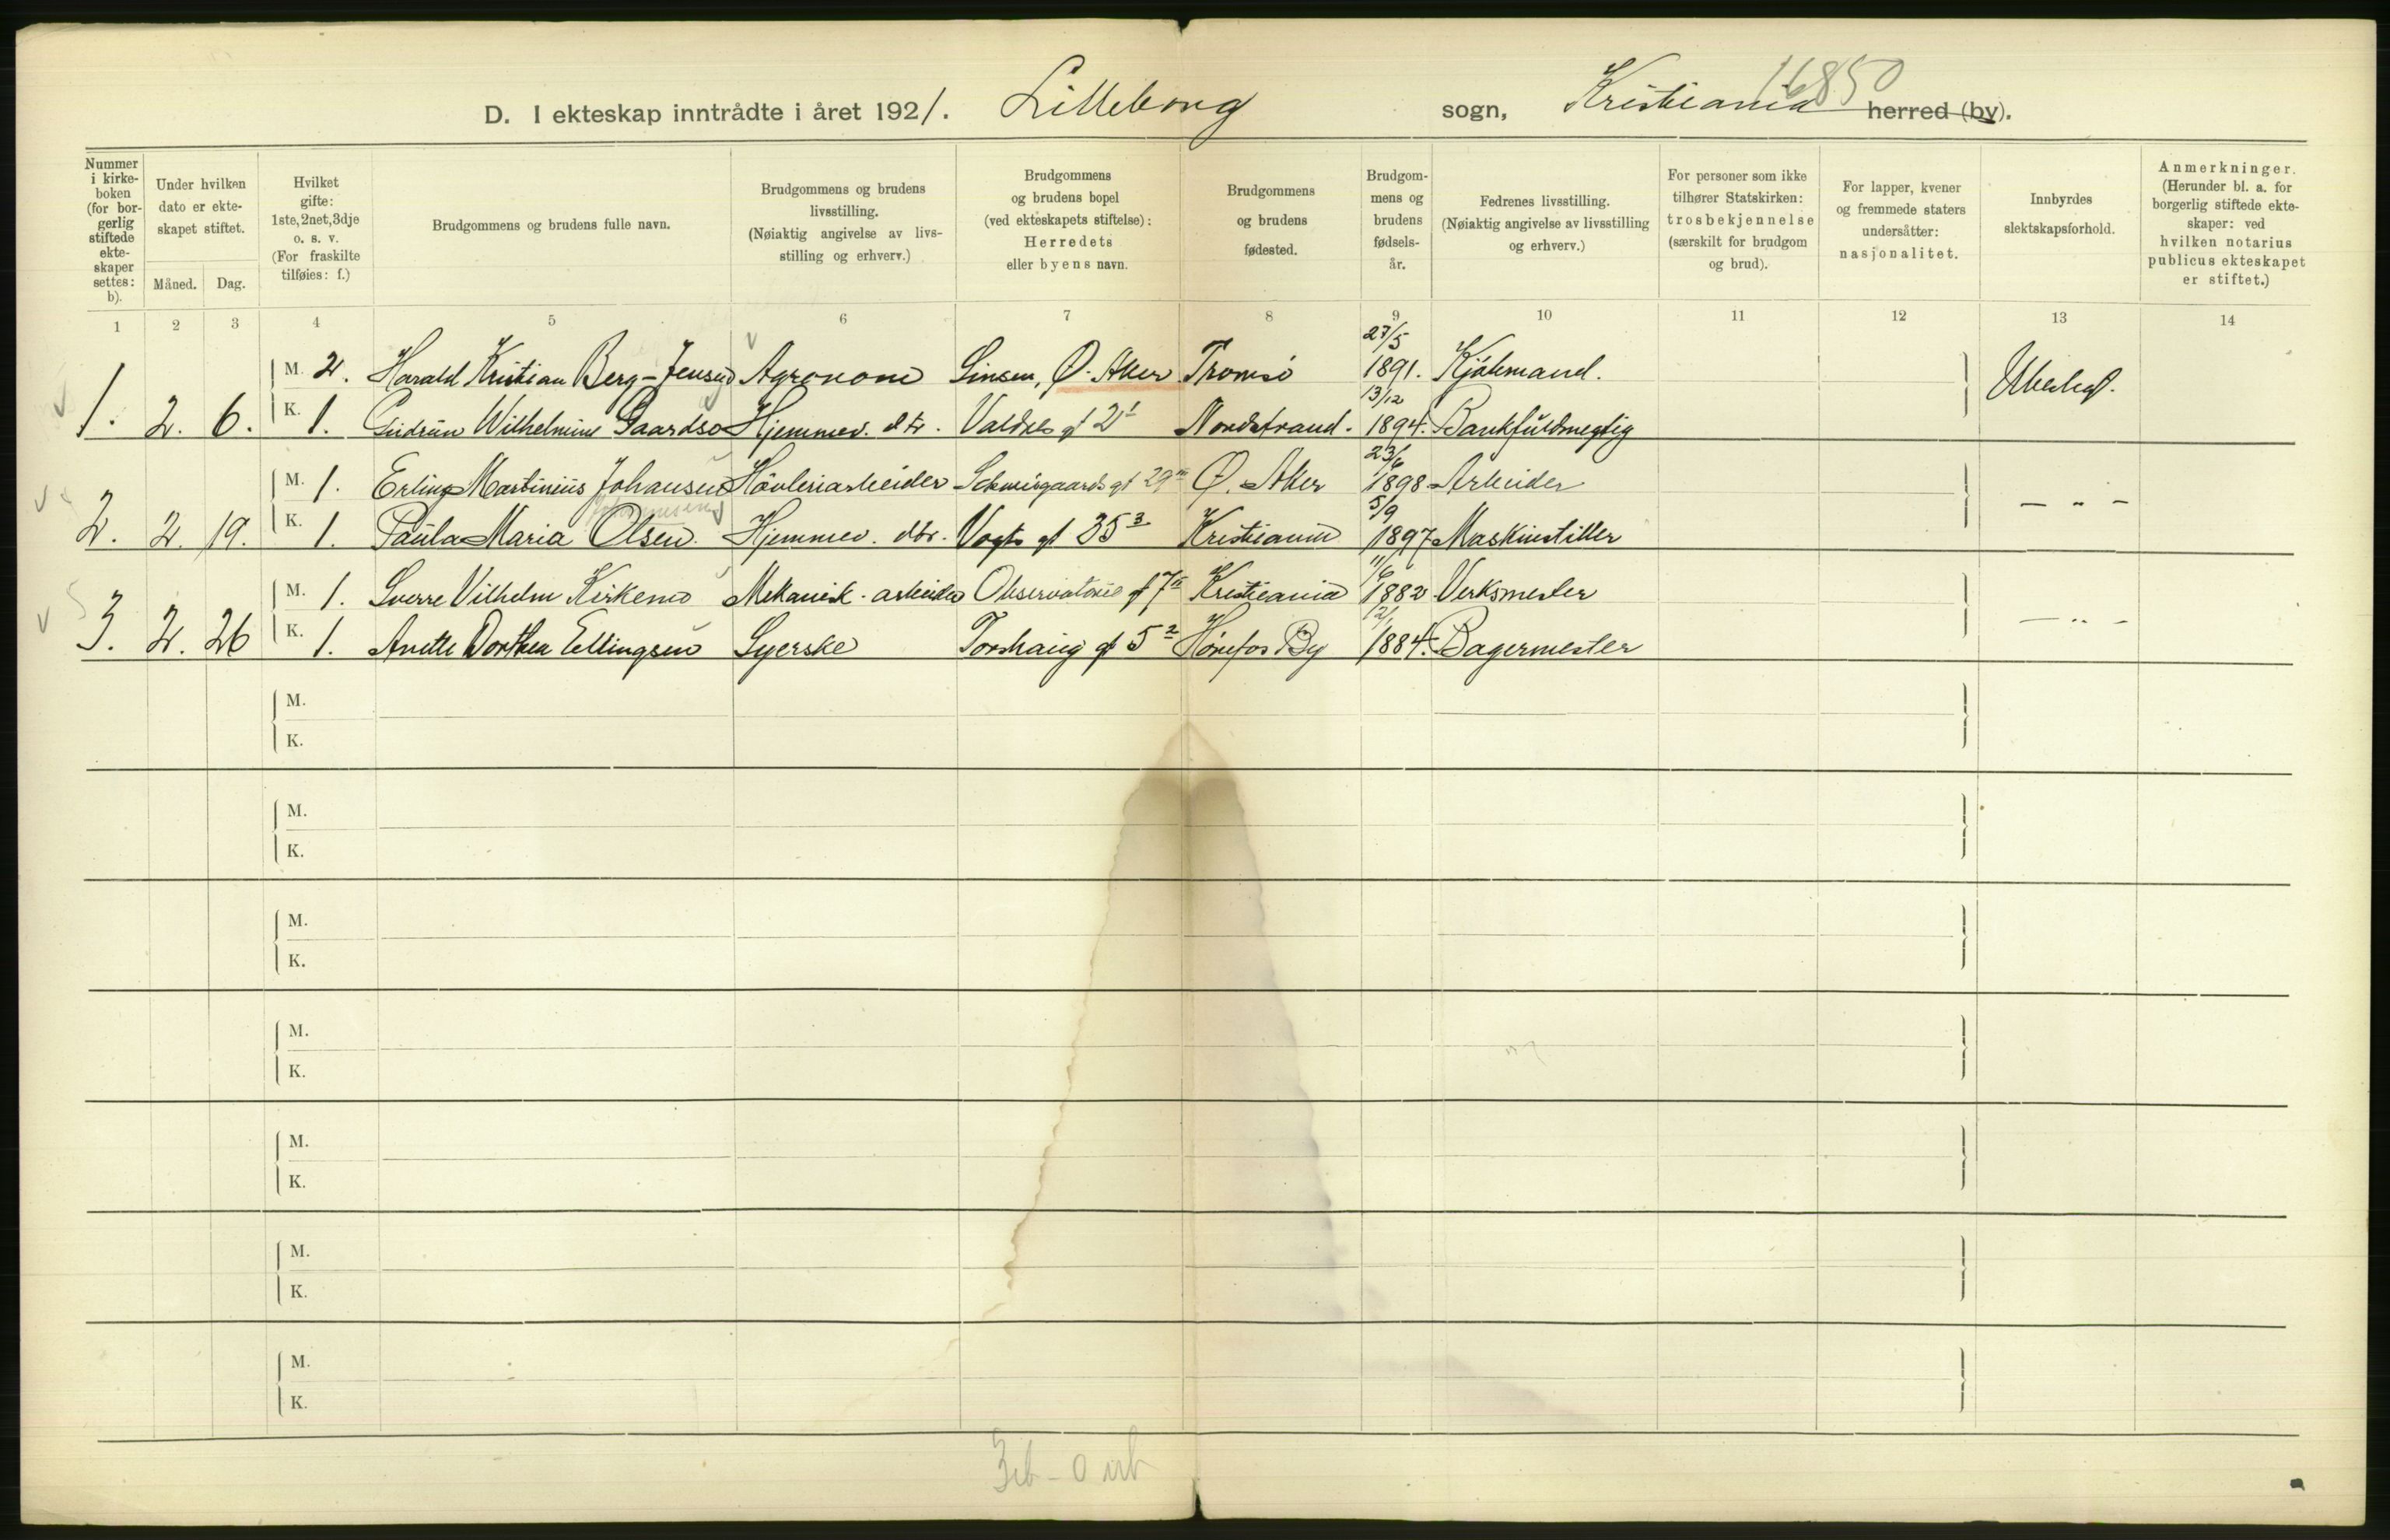 D. I ekteskap inntrådte i året 1921. Lilleborg sogn, Kristiania herred (by).
16850
Nummer i kirkeboken (for borgerlig stiftede ekteskaper settes: b).
Under hvilken dato er ekteskapet stiftet.
Måned. Dag.
Hvilket gifte: 1ste, 2net, 3dje o. s. v. (For fraskilte tilføies: f.)
Brudgommens og brudens fulle navn.
Brudgommens og brudens livsstilling. (Nøiaktig angivelse av livsstilling og erhverv.)
Brudgommens og brudens bopel (ved ekteskapets stiftelse): Herredets eller byens navn.
Brudgommens og brudens fødested.
Brudgommens og brudens fødselsår.
Fedrenes livsstilling. (Nøiaktig angivelse av livsstilling og erhverv.)
For personer som ikke tilhører Statskirken: trosbekjennelse (særskilt for brudgom og brud).
For lapper, kvener og fremmede staters undersåtter: nasjonalitet.
Innbyrdes slektskapsforhold.
Anmerkninger. (Herunder bl. a. for borgerlig stiftede ekteskaper: ved hvilken notarius publicus ekteskapet er stiftet.)
1 2 3 4 5 6 7 8 9 10 11 12 13 14
M. 2. Harald Kristian Berg-Jensen Agronom Sinsen, Ø. Aker Tromsø 27/5 1891. Kjøbmand. Ubesl.
1. 2. 6. K. 1. Gudrun Wilhelmine Gaardso Hjemmev. dtr. Valdres gt 2 Nordstrand. 13/12 1894. Bankfuldmegtig
M. 1. Erling Martinius Johansen Høvleriarbeider Schweigaards gt 29 Ø. Aker 23/6 1898 Arbeider — " —
2. 2. 19. K. 1. Paula Maria Olsen. Hjemmev. dtr. Vogts gt 35 3 Kristiania 5/9 1897 Maskinstiller
M. 1. Sverre Vilhelm Kirkemo Mekanisk. arbeider Observatorie gt 7 Kristiania 11/6 1882 Verksmester — " —
3. 2. 26 K. 1. Anette Dorthea Ellingsen Syerske Torshaug gt 5 2 Hønefos By 1884. Bagermester
M.
K.
M.
K.
M.
K.
M.
K.
M.
K.
M.
K.
M.
K.